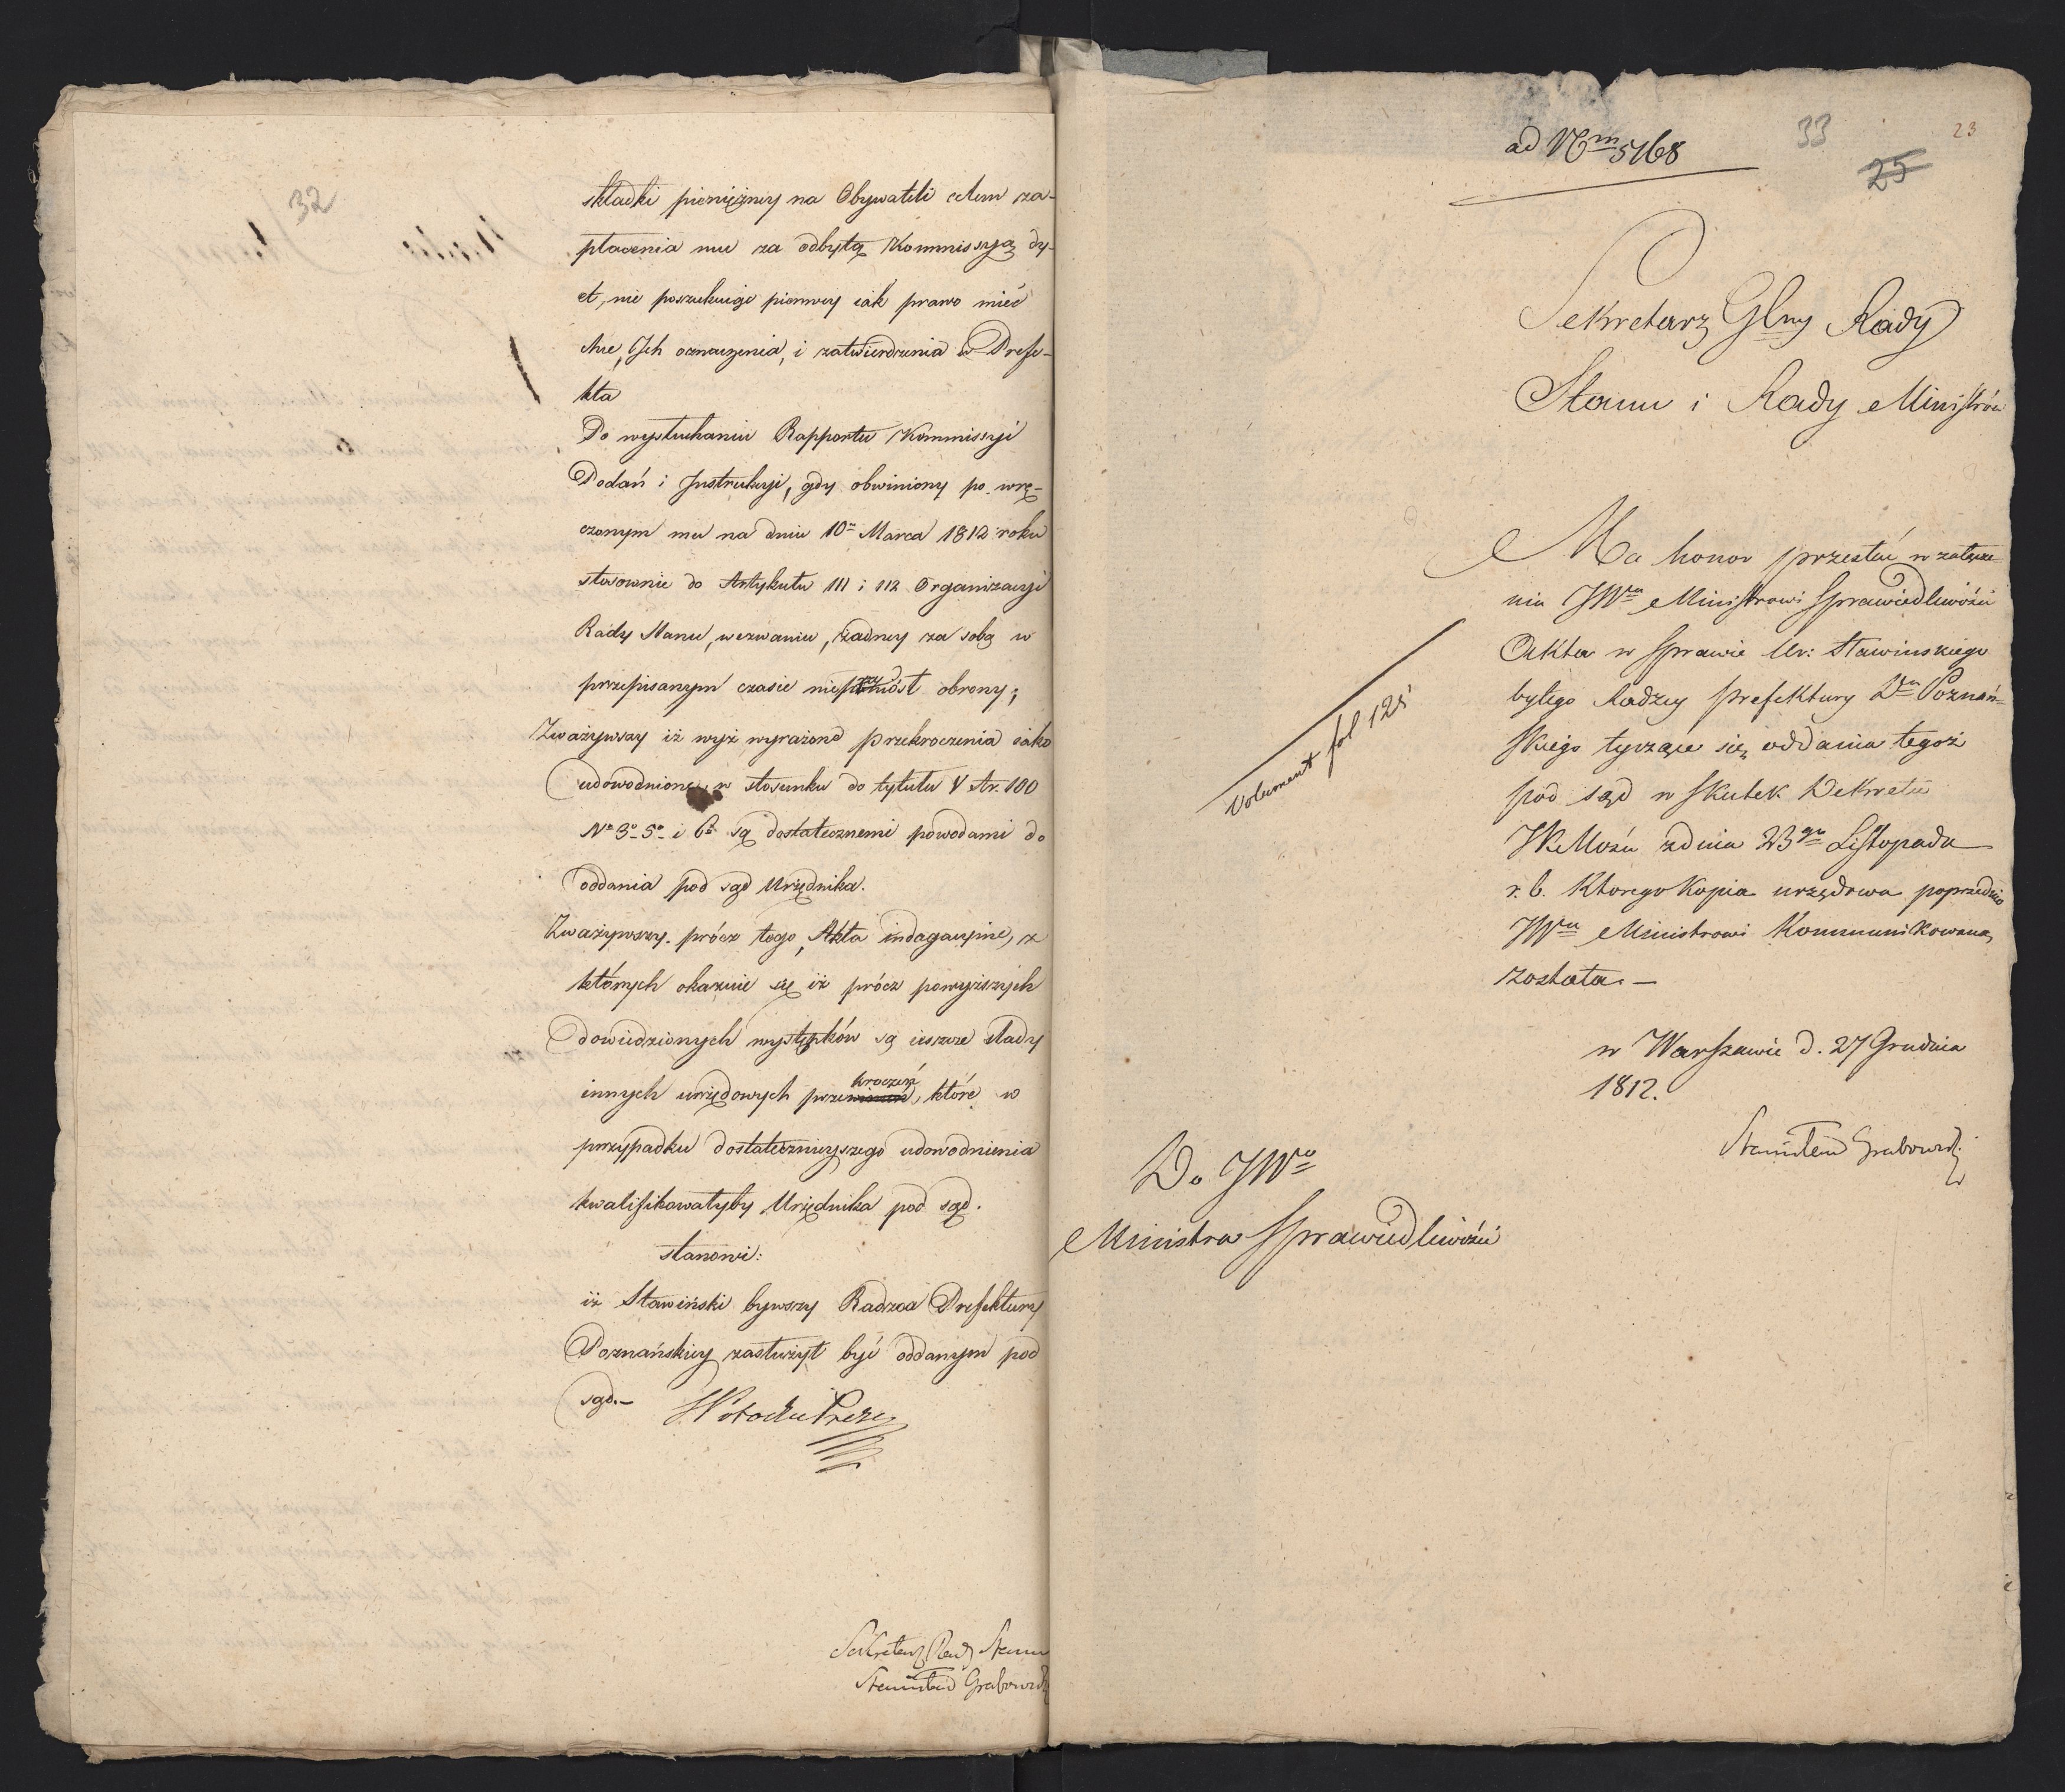 32
składki pieniężney na Obywateli celem za-
płacenia mu za odbytą Kommissyą dy-
et, nie poszukuige pierwey iak prawo mieć
chce, Ich oznaczenia, i zatwierdzenia u Prefe-
kta
Po wysłuchaniu Rapportu Kommissyi
Podań i Instrukcyi, gdy obwiniony po wrę-
czonym mu na dniu 10º Marca 1812 roku
stosownie do Artykułu 111 i 112 Organizacyi
Rady Stanu, wezwaniu, żadney za sobą w
przepisanym czasie nieprzyniósł obrony;
Zważywszy iż wyż wyrażone przekroczenia iako
udowodnione, w stosunku do tytułu V Ar. 100
Nº 3º 5º i 6º są dostatecznemi powodami do
oddania pod sąd Urzędnika.
Zważywszy prócz tego, Akta indagacyine, z
których okazuie się iż prócz powyższych
dowiedzionych występków są ieszcze ślady
innych urzędowych przekroczeń, które w
przypadku dostatecznieyszego udowodnienia
kwalifikowałyby Urzędnika pod sąd.
stanowi:
iż Sławiński bywszy Radzca Prefektury
Poznańskiey zasłużył być oddanym pod
sąd.-
Sekretarz Rady Stanu
Stanisław Grabowski
ad Nrm 5768
33
23
25
Sekretarz Glny Rady
Stanu i Rady Ministrów
Ma honor przesłać w załącze-
niu JWu Ministrowi Sprawiedliwości
Akta w Sprawie Ur: Sławinskiego
byłego Radzcy Prefektury Dtu Poznań-
skiego tyczące się oddania tegoż
pod sąd w skutek Dekretu
JKMości z dnia 23go Listopada
r. b. ktorego Kopia urzędowa poprzednio
JWu Ministrowi Kommunikowana
została. —
w Warszawie d. 27 Grudnia
1812.
Stanisław Grabowski
Volument fol 125
Do JWo
Ministra Sprawiedliwości